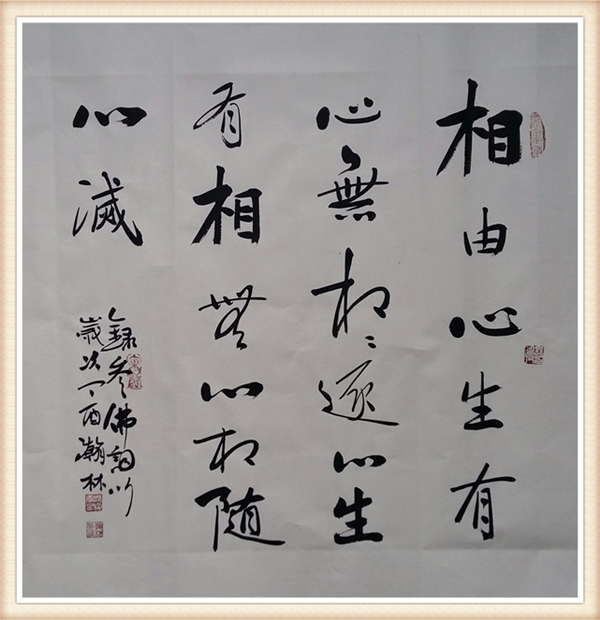 相由心生有
心無相〻逐心生
有相無心相随
心滅
録参佛
歲次丁酉瀚林